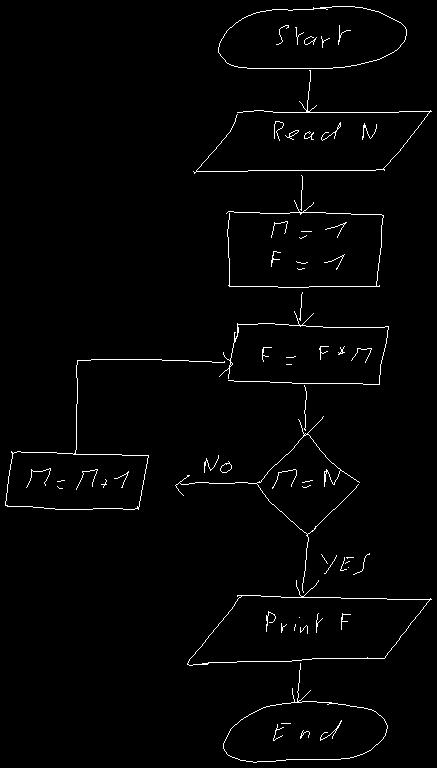 Start
Read N
M = 1
F = 1
F = F * M
M = N
No
M = M + 1
YES
Print F
End